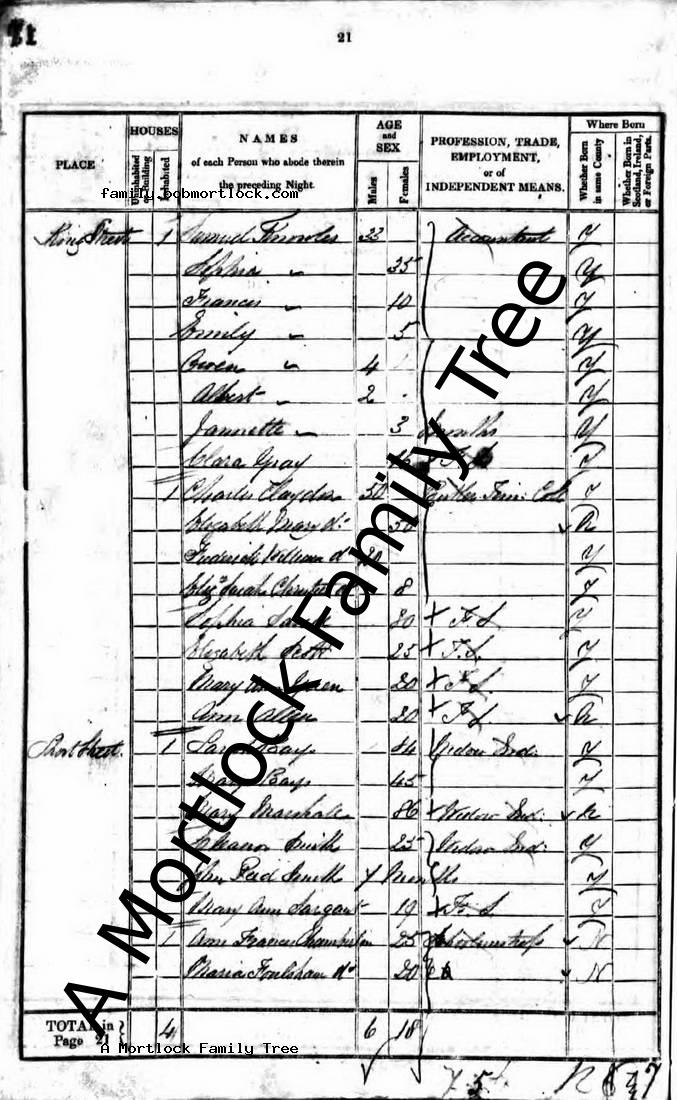 21
21
PLACE
HOUSES
Uninhabited or Building
Inhabited
NAMES
of each Person who abode therein
the preceding Night.
AGE
and
SEX
Males
Females
PROFESSION, TRADE,
EMPLOYMENT,
or of
INDEPENDENT MEANS.
Where Born
Whether Born in same County
Whether Born in Scotland, Ireland, or Foreign Parts.
family.bobmortlock.com
King Street 1 Samuel Knowles 33 Accountant Y
Sophia 35 Y
Frances 10 Y
Emily 5 Y
Owen 4 Y
Albert 2 Y
Jannette 3 months Y
Clara Gray F. S. Y
1 Charles 50 Y
Elizabeth Mary do 50 N
Frederick William do 20 Y
Sarah do 8 Y
Sophia 20 F. S. Y
Elizabeth Scott 25 F. S. Y
Mary Ann 20 F. S. Y
Ann Allen 20 F. S. N
Short Street. 1 84 Widow Ind: Y
Bays 45 Y
Mary Marshall 86 Widow Ind: N
Eleanor Smith 25 Widow Ind: Y
John Reid Smith 7 Months Y
Mary Ann Sargant 19 F. S. Y
1 Ann Frances Chamberlain 25 Schoolmistress N
Maria Foulsham do 20 N
TOTAL in
Page 21
4 6 18
A Mortlock Family Tree
A Mortlock Family Tree